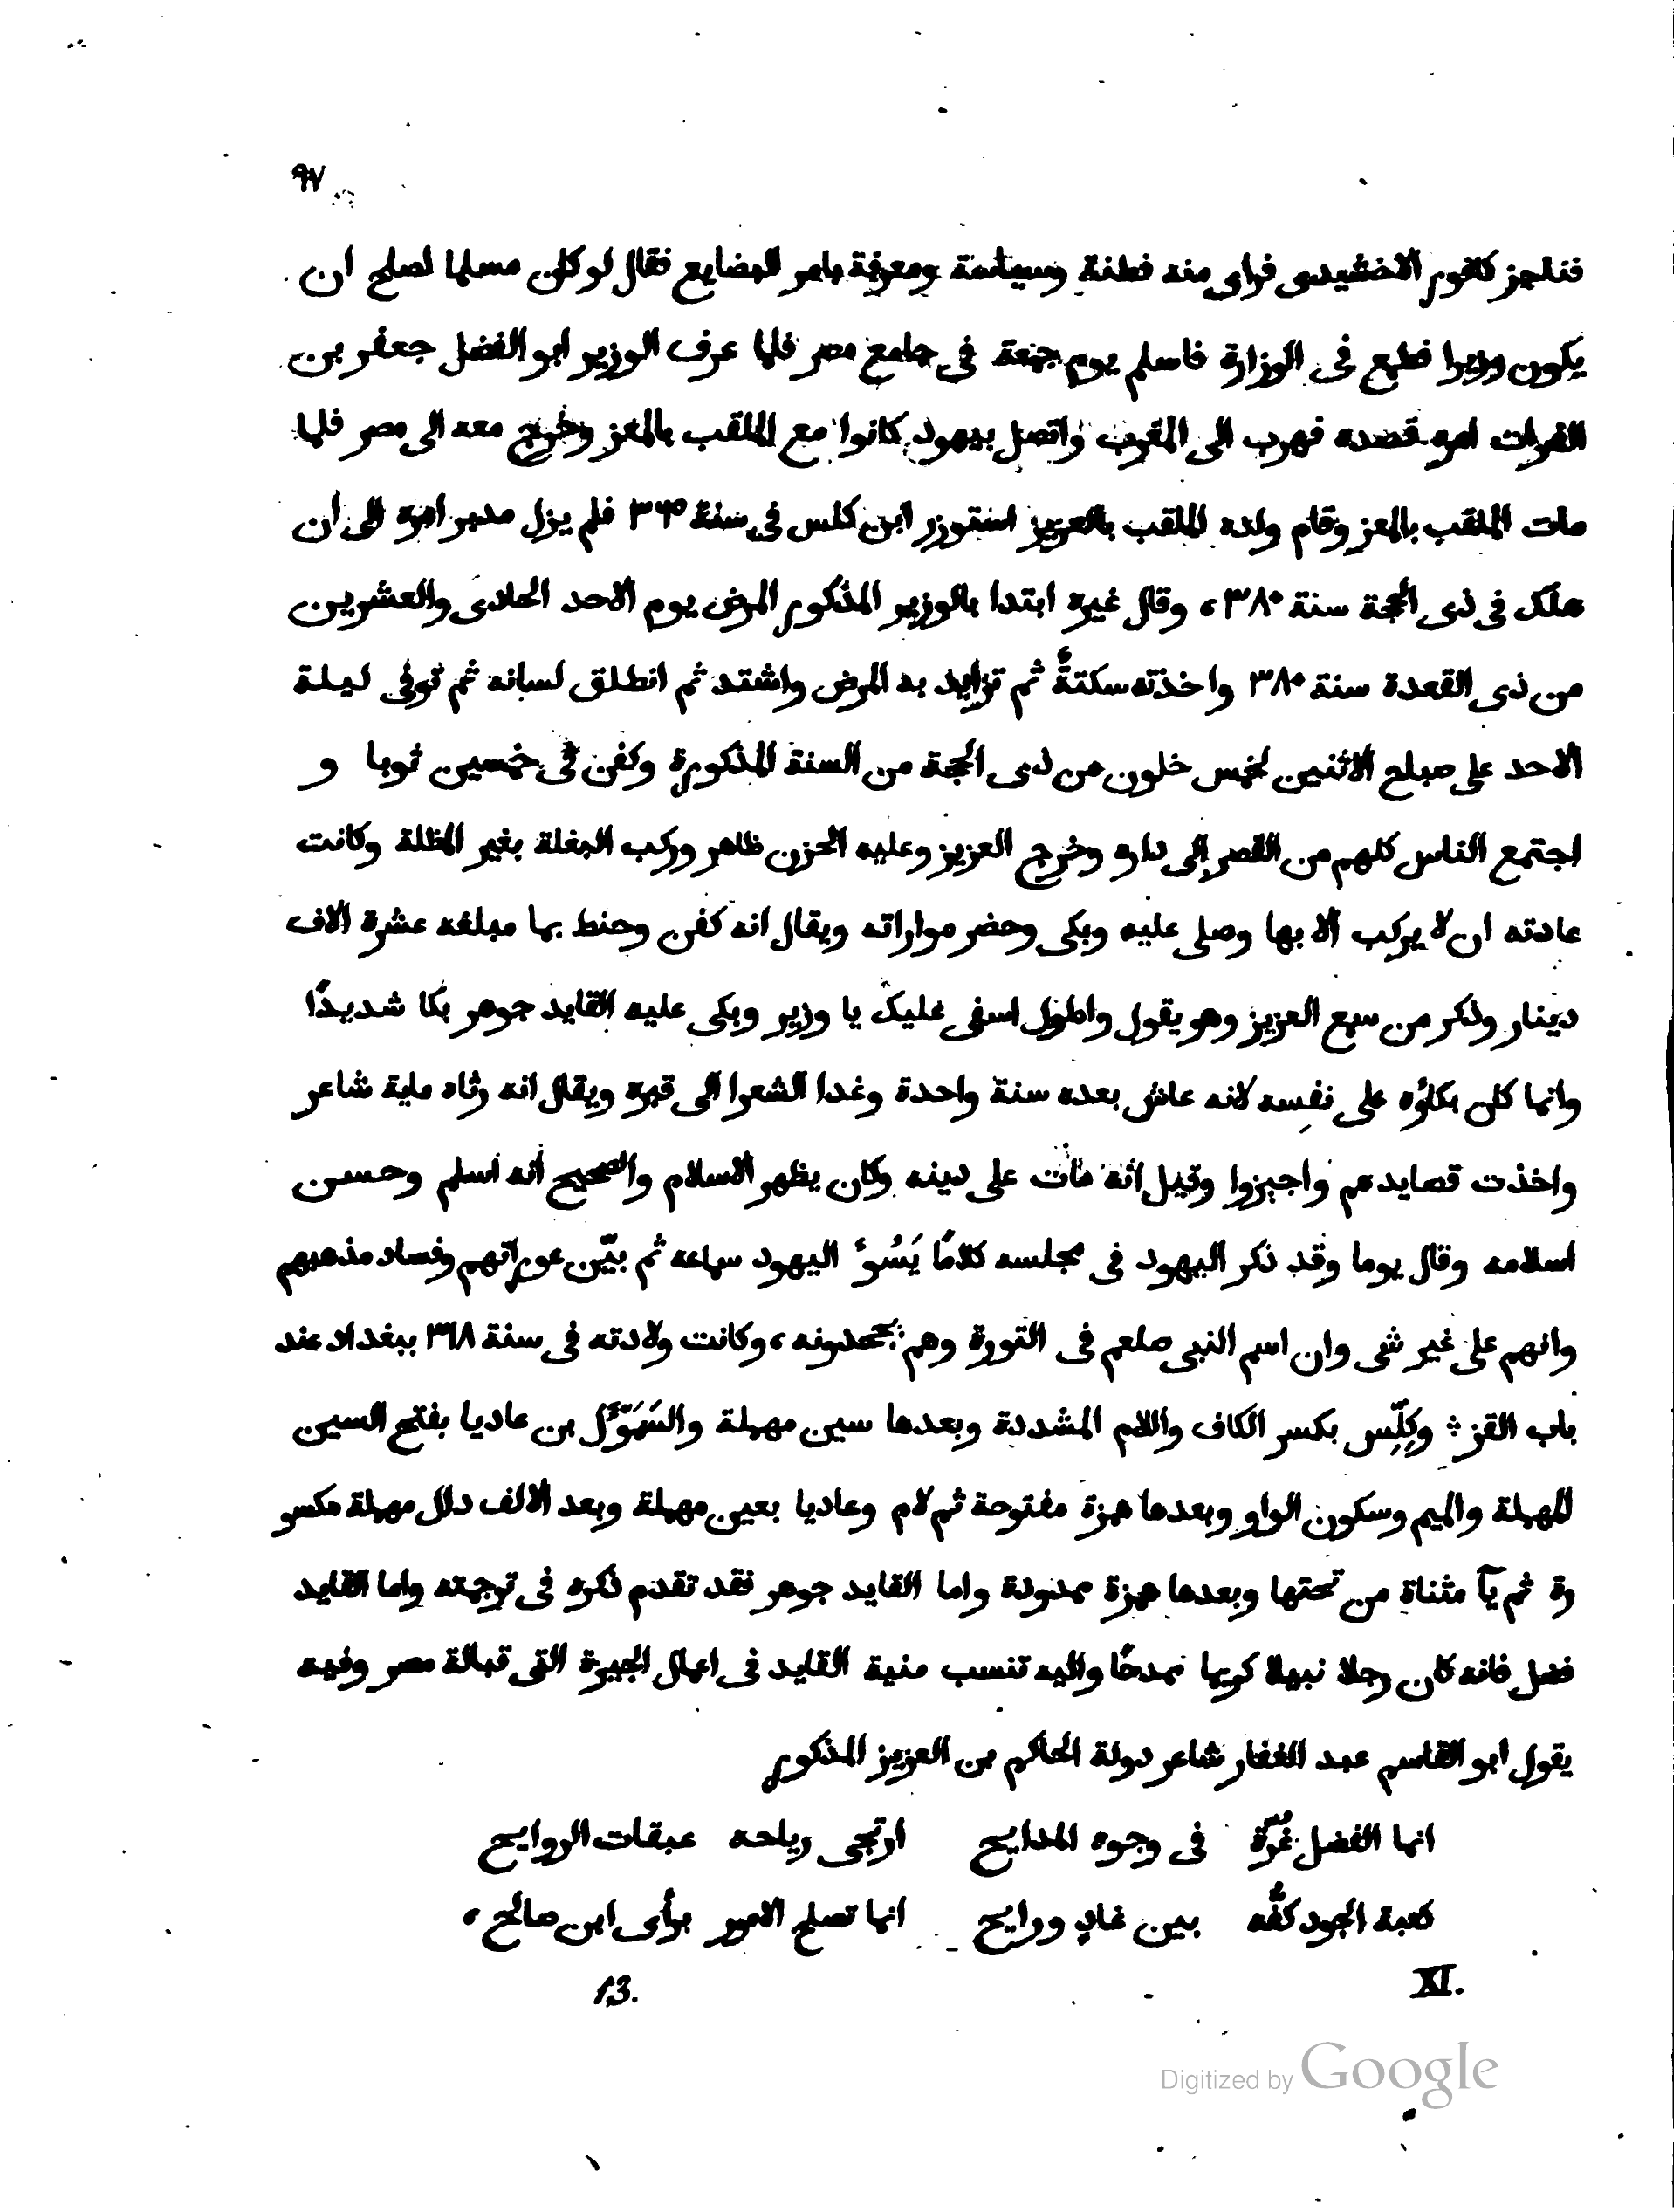 ٩٧
فتاجر كافور الاخشيدى فراى منه فطنة وسياسة ومعرفة بامر الضايع فقال لو كان مسلما لصلح ان
يكون وزيرا فطمع فى الوزارة فاسلم يوم جمعة فى جامع مصر فلما عرف الوزير ابو الفضل جعفر بن
الفرات امره قصده فهرب الى المغرب واتصل بيهود كانوا مع الملقب بالمعز وخرج معه الى مصر فلما
مات الملقب بالمعز وقام ولده الملقب بالعزيز استوزر ابن كلس فى سنة ٣٦٥ فلم يزل مدبر امره الى ان
هلك فى ذى الحجة سنة ٣٨٠، وقال غيره ابتدا بالوزير المذكور المرض يوم الاحد الحادى والعشرين
من ذى القعدة سنة ٣٨٠ واخذته سكتةٌ ثم تزايد به المرض واشتد ثم انطلق لسانه ثم توفى ليلة
الاحد على صباح الاثنين لخمس خلون من ذى الحجة من السنة المذكورة وكفن فى خمسين ثوبا و
اجتمع الناس كلهم من القصر الى داره وخرج العزيز وعليه الحزن ظاهر وركب البغلة بغير المظلة وكانت
عادته ان لا يركب الا بها وصلى عليه وبكى وحضر مواراته ويقال انه كفن وحنط بما مبلغه عشرة الاف
دينار وذكر من سمع العزيز وهو يقول واطول اسفى عليك يا وزير وبكى عليه القايد جوهر بكا شديدًا
وانما كان بكاؤه على نفسه لانه عاش بعده سنة واحدة وغدا الشعرا الى قبره ويقال انه رثاه ماية شاعر
واخذت قصايدهم واجيزوا وقيل انه مات على دينه وكان يظهر الاسلام والصحيح انه اسلم وحسن
اسلامه وقال يوما وقد ذكر اليهود فى مجلسه كلامًا يَسُوءُ اليهود سماعه ثم بيّن عوراتهم وفساد مذهبهم
وانهم على غير شى وان اسم النبى صلعم فى التورة وهم يجحدونه، وكانت ولادته فى سنة ٣١٨ ببغداد عند
باب القز ؞ وكِلِّس بكسر الكاف واللام المشددة وبعدها سين مهملة والسَمَوْءَل بن عاديا بفتح السين
المهملة والميم وسكون الواو وبعدها همزة مفتوحة ثم لام وعاديا بعين مهملة وبعد الالف دال مهملة مكسو
رة ثم يآ مثناة من تحتها وبعدها همزة ممدودة واما القايد جوهر فقد تقدم ذكره فى ترجمته واما القايد
فضل فانه كان رجلا نبيلا كريما ممدحًا واليه تنسب منية القايد فى اعمال الجيزة التى قبالة مصر وفيه
يقول ابو القاسم عبد الغفار شاعر دولة الحاكم بن العزيز المذكور
انما الفضل غُرّة فى وجوه المدايح ارتجى رياحه عبقات الروايح
كعبة الجود كفُّه بين غادٍ ورايح انما تصلح الامور برأى ابن صالح،
XI. 13.
Digitized by Google